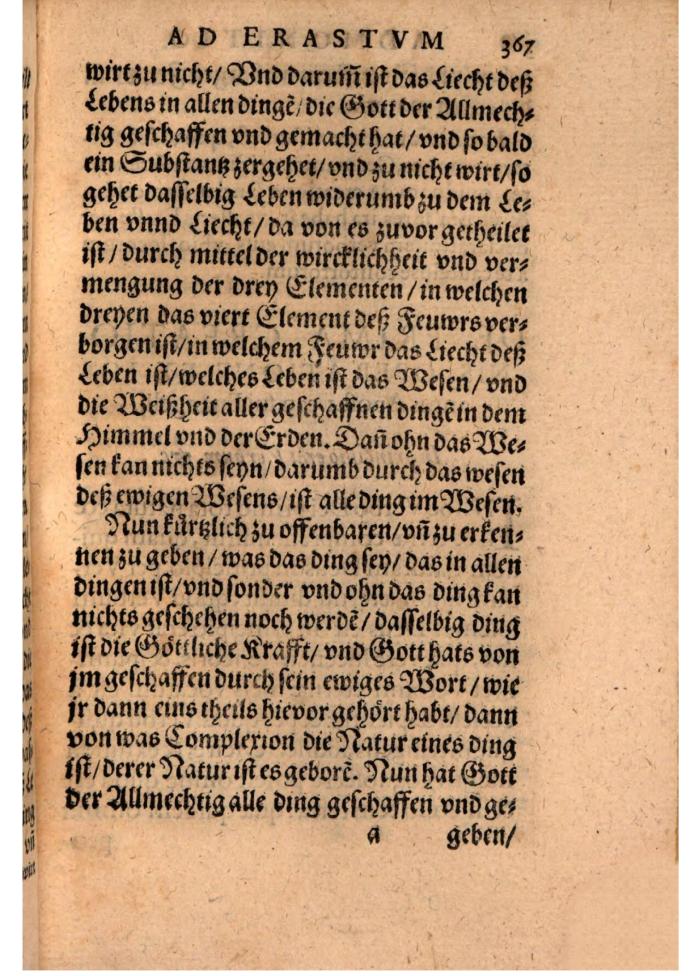 AD ERASTVM 367
wirt zu nicht/ Vnd darum̃ ist das Liecht deß
Lebens in allen dingẽ/ die Gott der Allmech⸗
tig geschaffen vnd gemacht hat/ vnd so bald
ein Substantz zergehet/ vnd zu nicht wirt/ so
gehet dasselbig Leben widerumb zu dem Le⸗
ben vnnd Liecht/ da von es zuvor getheilet
ist/ durch mittel der wircklichheit vnd ver⸗
mengung der drey Elementen/ in welchen
dreyen das viert Element deß Feuwrs ver⸗
borgen ist/ in welchem Feuwr das Liecht deß
Leben ist/ welches Leben ist das Wesen/ vnd
die Weißheit aller geschaffnen dingẽ in dem
Himmel vnd der Erden. Dañ ohn das We⸗
sen kan nichts seyn/ darumb durch das wesen
deß ewigen Wesens/ ist alle ding im Wesen.
Nun kürtzlich zu offenbaren/ vñ zu erken⸗
nen zu geben/ was das ding sey/ das in allen
dingen ist/ vnd sonder vnd ohn das ding kan
nichts geschehen noch werdẽ/ dasselbig ding
ist die Göttliche Krafft/ vnd Gott hats von
jm geschaffen durch sein ewiges Wort/ wie
jr dann eins theils hievor gehört habt/ dann
von was Complexion die Natur eines ding
ist/ derer Natur ist es geborẽ. Nun hat Gott
der Allmechtig alle ding geschaffen vnd ge⸗
a geben/